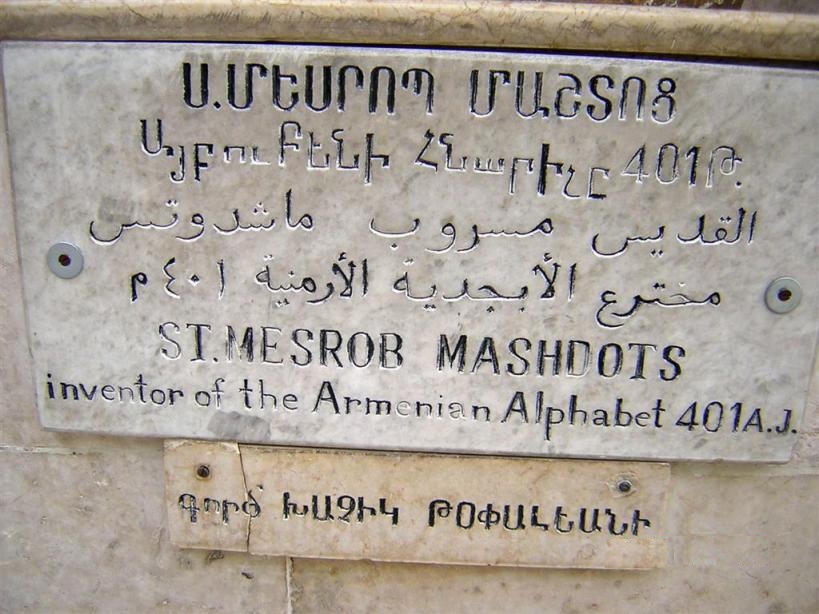 Ս.ՄԵՍՐՈՊ ՄԱՇՏՈՑ
Այբուբենի Հնարիչը 401թ.
القديس مسروب ماشدوتس
مخترع الأبجدية الأرمنية ٤٠١ م
ST.MESROB MASHDOTS
inventor of the Armenian Alphabet 401A.J.
գործ ԽԱՉԻԿ ԹՕՓԱԼԵԱՆԻ